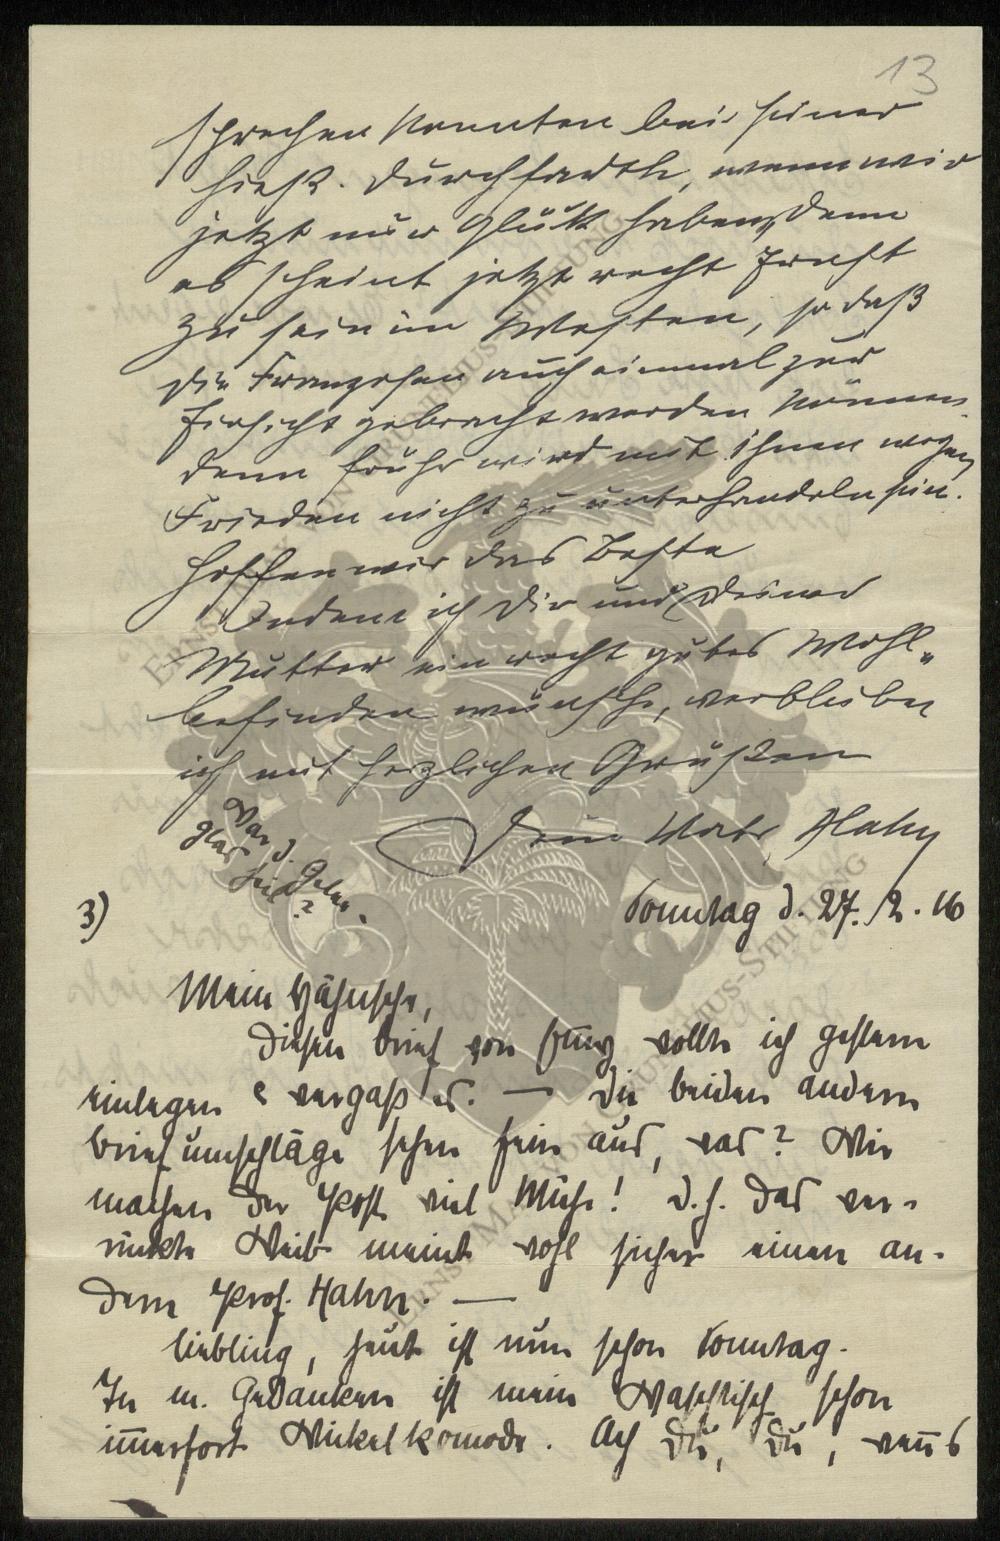 13
sprechen konnten bei seiner
hies. Durchfarth, wenn wir
jetzt nur Glück haben, denn
es scheint jetzt recht Ernst
zu sein im Westen, so daß
die Franzosen auch einmal zur
Einsicht gebracht werden können
denn früher wird mit Ihnen wegen
Frieden nicht zu unterhandeln sein.
Hoffen wir das Beste
Indem ich Dir und Deiner
Mutter ein recht gutes Wohl-
befinden wünsche, verbleibe
ich mit herzlichen Grüßen
Dein Vater Hahn
War d.
Glas
3)
Sonntag d. 27. 2. 16
Mein Hähnsche,
Diesen Brief von wollte ich gestern
einlegen & vergaß es. — Die beiden andern
Briefumschläge sehen fein aus, was? Wir
machen der Post viel Mühe! D.h. das ver-
rückte Weib meint wohl sicher einen an-
dern Prof. Hahn. —
Liebling, heut ist nun schon Sonntag.
In m. Gedanken ist mein Waschtisch schon
im̄erfort Wickelkomode. Ach Du, Du, wen̄s
ERNST MAX VON GRUNELIUS-STIFTUNG
ERNST MAX VON GRUNELIUS-STIFTUNG